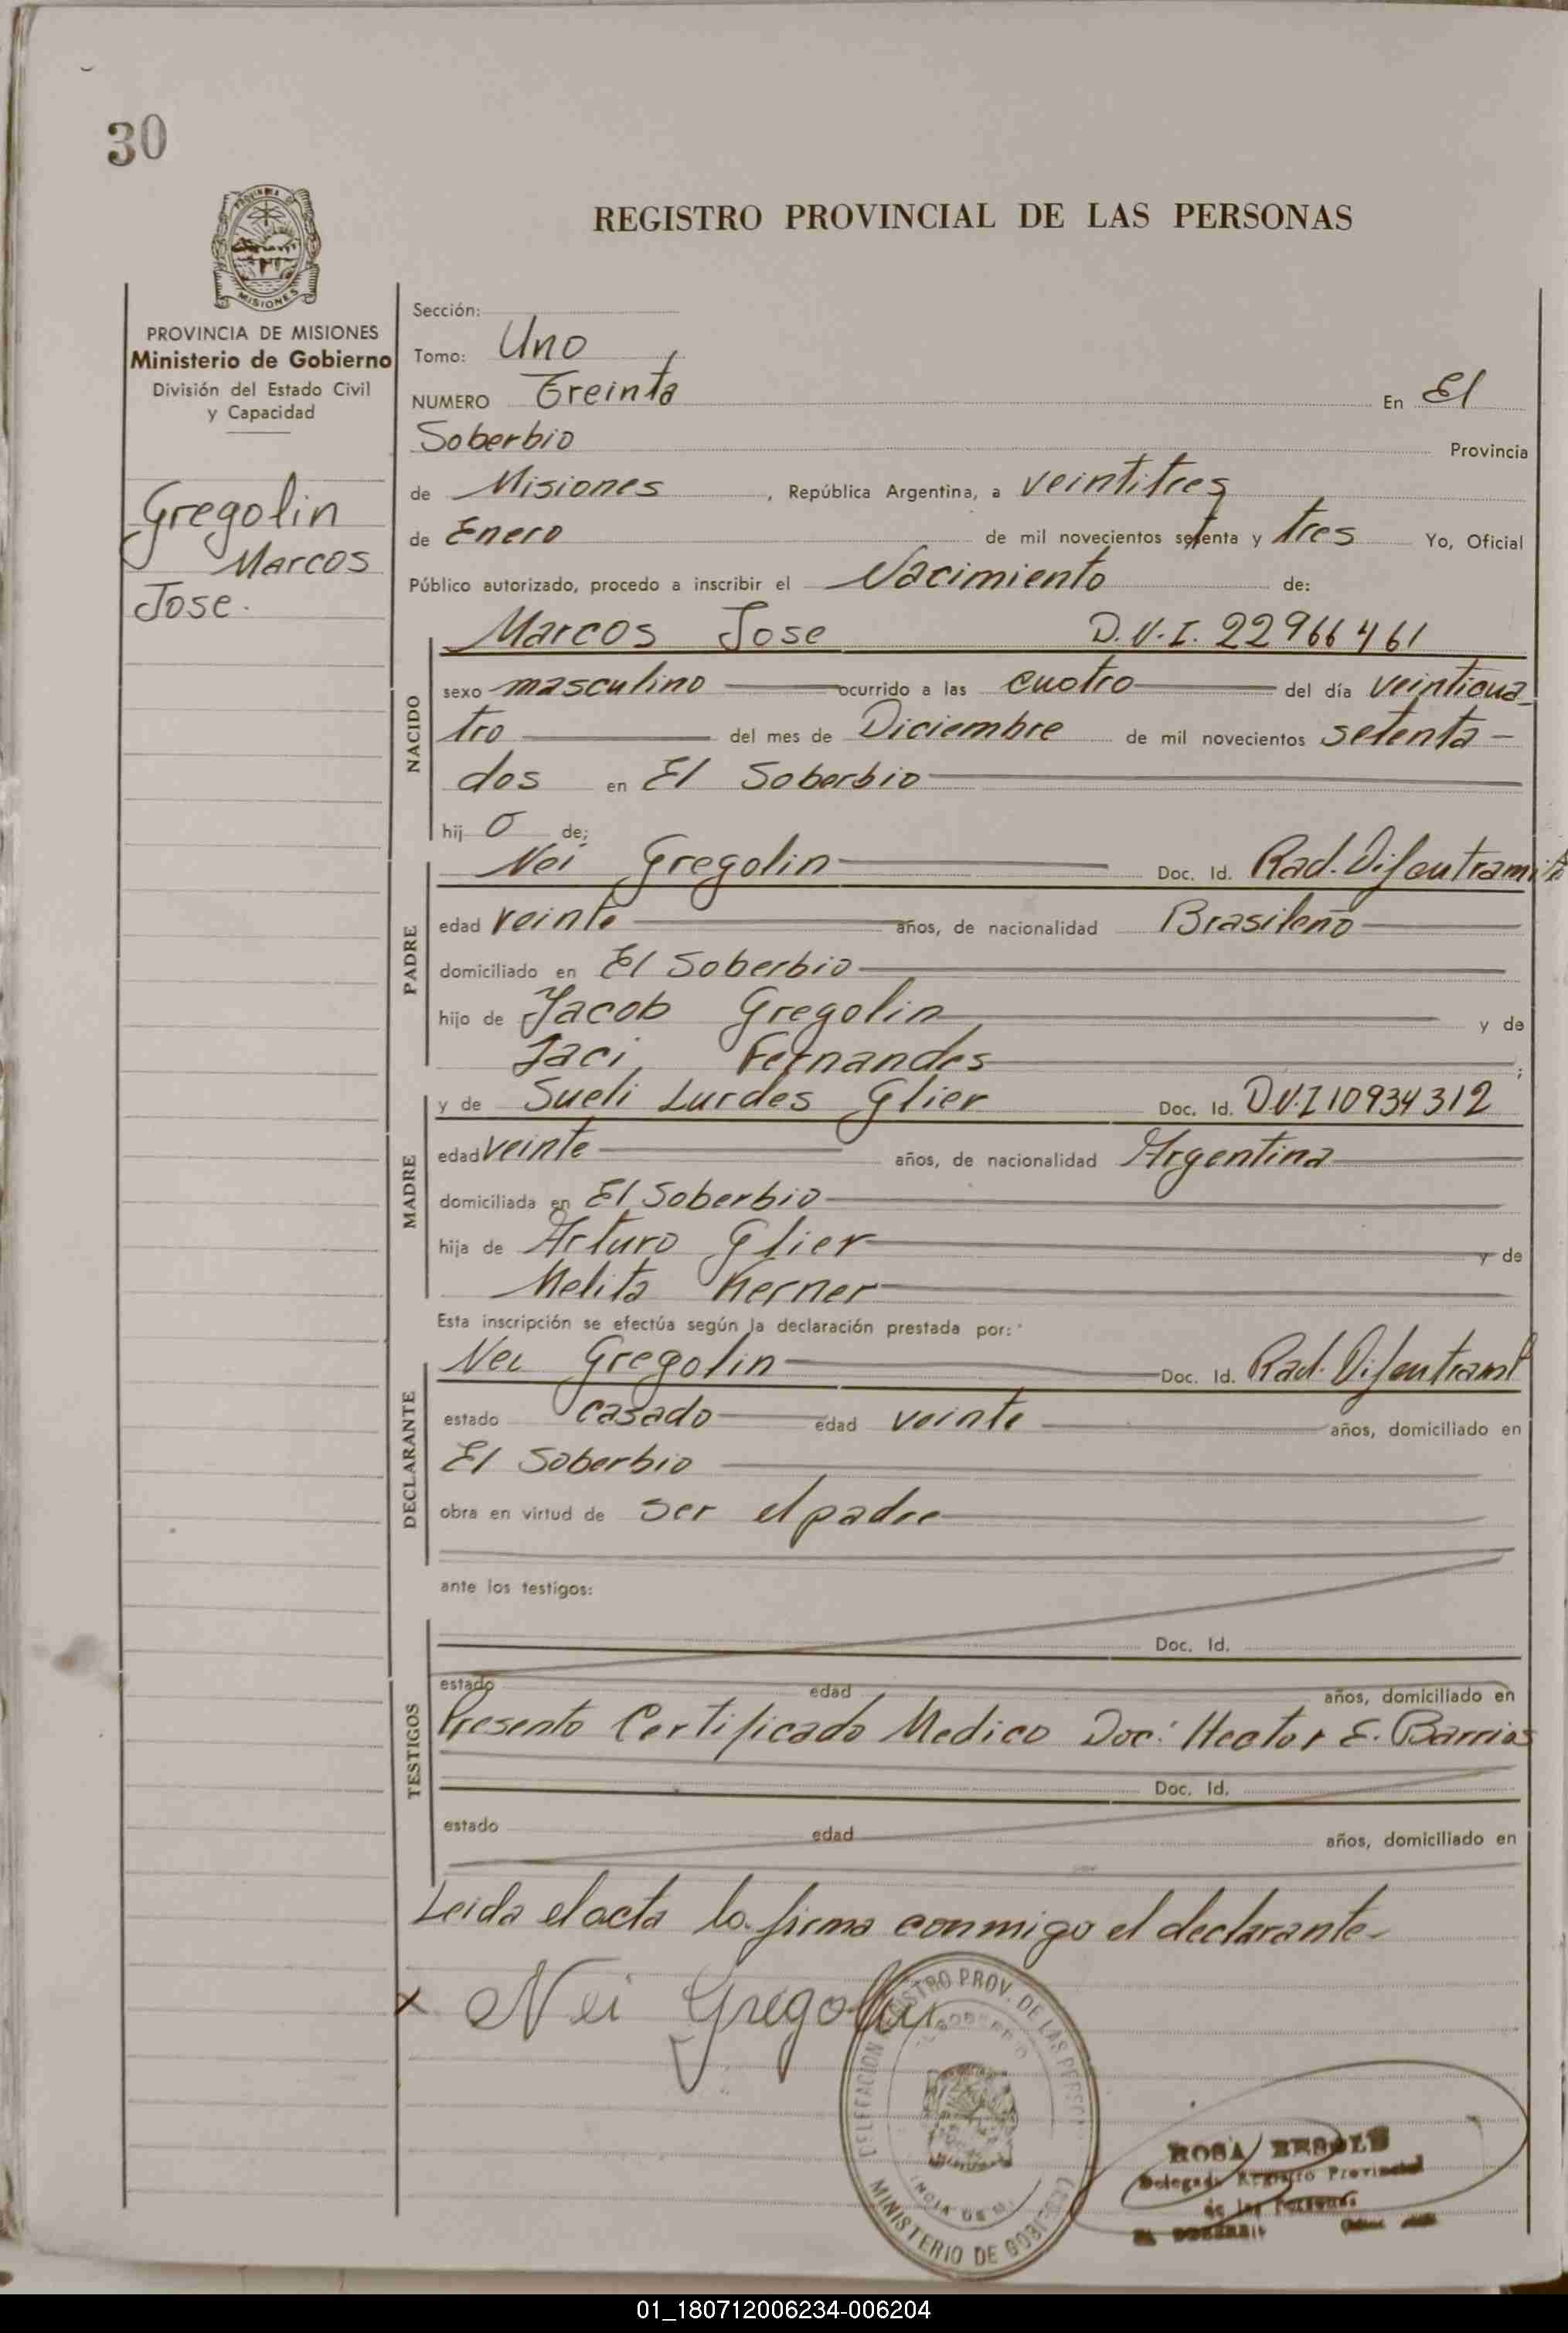 30
REGISTRO PROVINCIAL DE LAS PERSONAS
MISIONES
PROVINCIA DE MISIONES
Ministerio de Gobierno
División del Estado Civil
y Capacidad
Gregolin
Marcos
Jose.
Sección:
Tomo: Uno
NUMERO Treinta En El
Soberbio Provincia
de Misiones, República Argentina, a veintitres
de Enero de mil novecientos setenta y tres Yo, Oficial
Público autorizado, procedo a inscribir el Nacimiento de:
NACIDO
Marcos Jose D.N.I. 22966461
sexo masculino ocurrido a las cuatro del día veinticua-
tro del mes de Diciembre de mil novecientos setenta -
dos en El Soberbio
hij o de;
PADRE
Nei Gregolin Doc. Id. Rad.
edad veinte años, de nacionalidad Brasileño
domiciliado en El Soberbio
hijo de Jacob Gregolin y de
Jaci Fernandes ;
MADRE
y de Sueli Lurdes Glier Doc. Id. D.N.I 10934312
edad veinte años, de nacionalidad Argentina
domiciliada en El Soberbio
hija de Arturo Glier y de
Melita Kerner
Esta inscripción se efectúa según la declaración prestada por:
DECLARANTE
Nei Gregolin Doc. Id. Rad.
estado casado edad veinte años, domiciliado en
El Soberbio
obra en virtud de ser el padre
ante los testigos:
TESTIGOS
Doc. Id.
estado edad años, domiciliado en
Presento Certificado Medico Doc. Hector E. Barrios
Doc. Id.
estado edad años, domiciliado en
Leida el acta la firma conmigo el declarante-
x Nei Gregolin
PROV. DE LAS
MINISTERIO DE GOBIERNO
ROSA
Registro Provincial
de las Personas
01_180712006234-006204